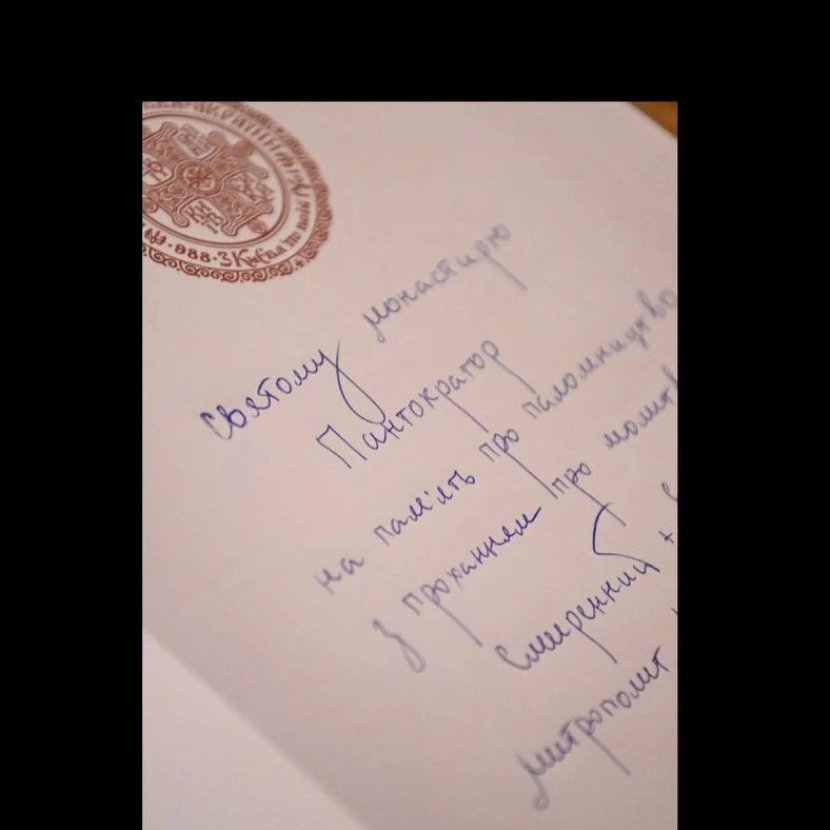 988 · З Києва по всій
Святому монастирю
Пантократор
на пам'ять про паломництво
з проханням про молитв
Смиренний +
митрополит